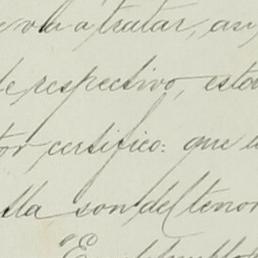 va a tratar, así
de respectivo, esta
tor certifico: que
lla son del tenor